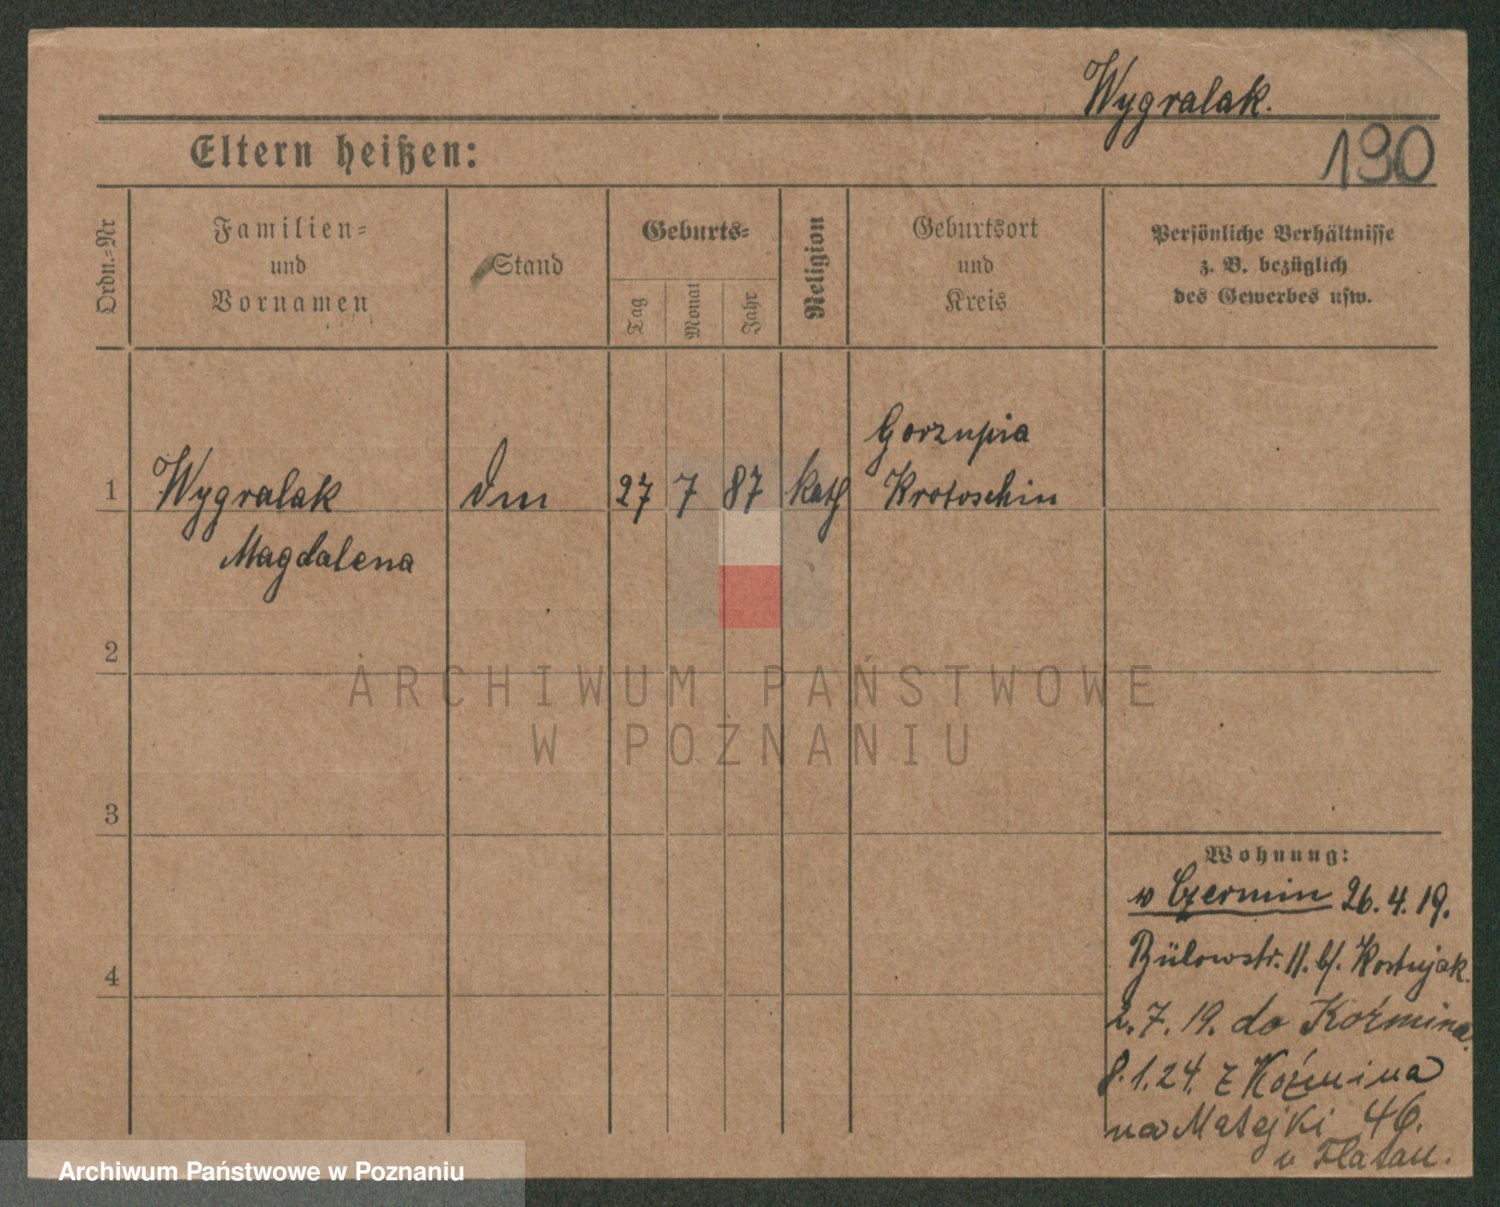 Wygralak.
190
Eltern heißen:
Ordn.-Nr
Familien-
und
Vornamen
Stand
Geburts-
Tag
Monat
Jahr
Religion
Geburtsort
und
Kreis
Persönliche Verhältnisse
z. B. bezüglich
des Gewerbes usw.
Gorzupia
1 Wygralak Dm 27 7 87 kath Krotoschin
Magdalena
2
3
4
Wohnung:
Czermin 26.4.19.
Bülowstr. 11. b/.
2.7.19. do Koźmina.
8.1.24. z Koźmina
na Matejki 46.
ARCHIWUM PAŃSTWOWE
W POZNANIU
Archiwum Państwowe w Poznaniu